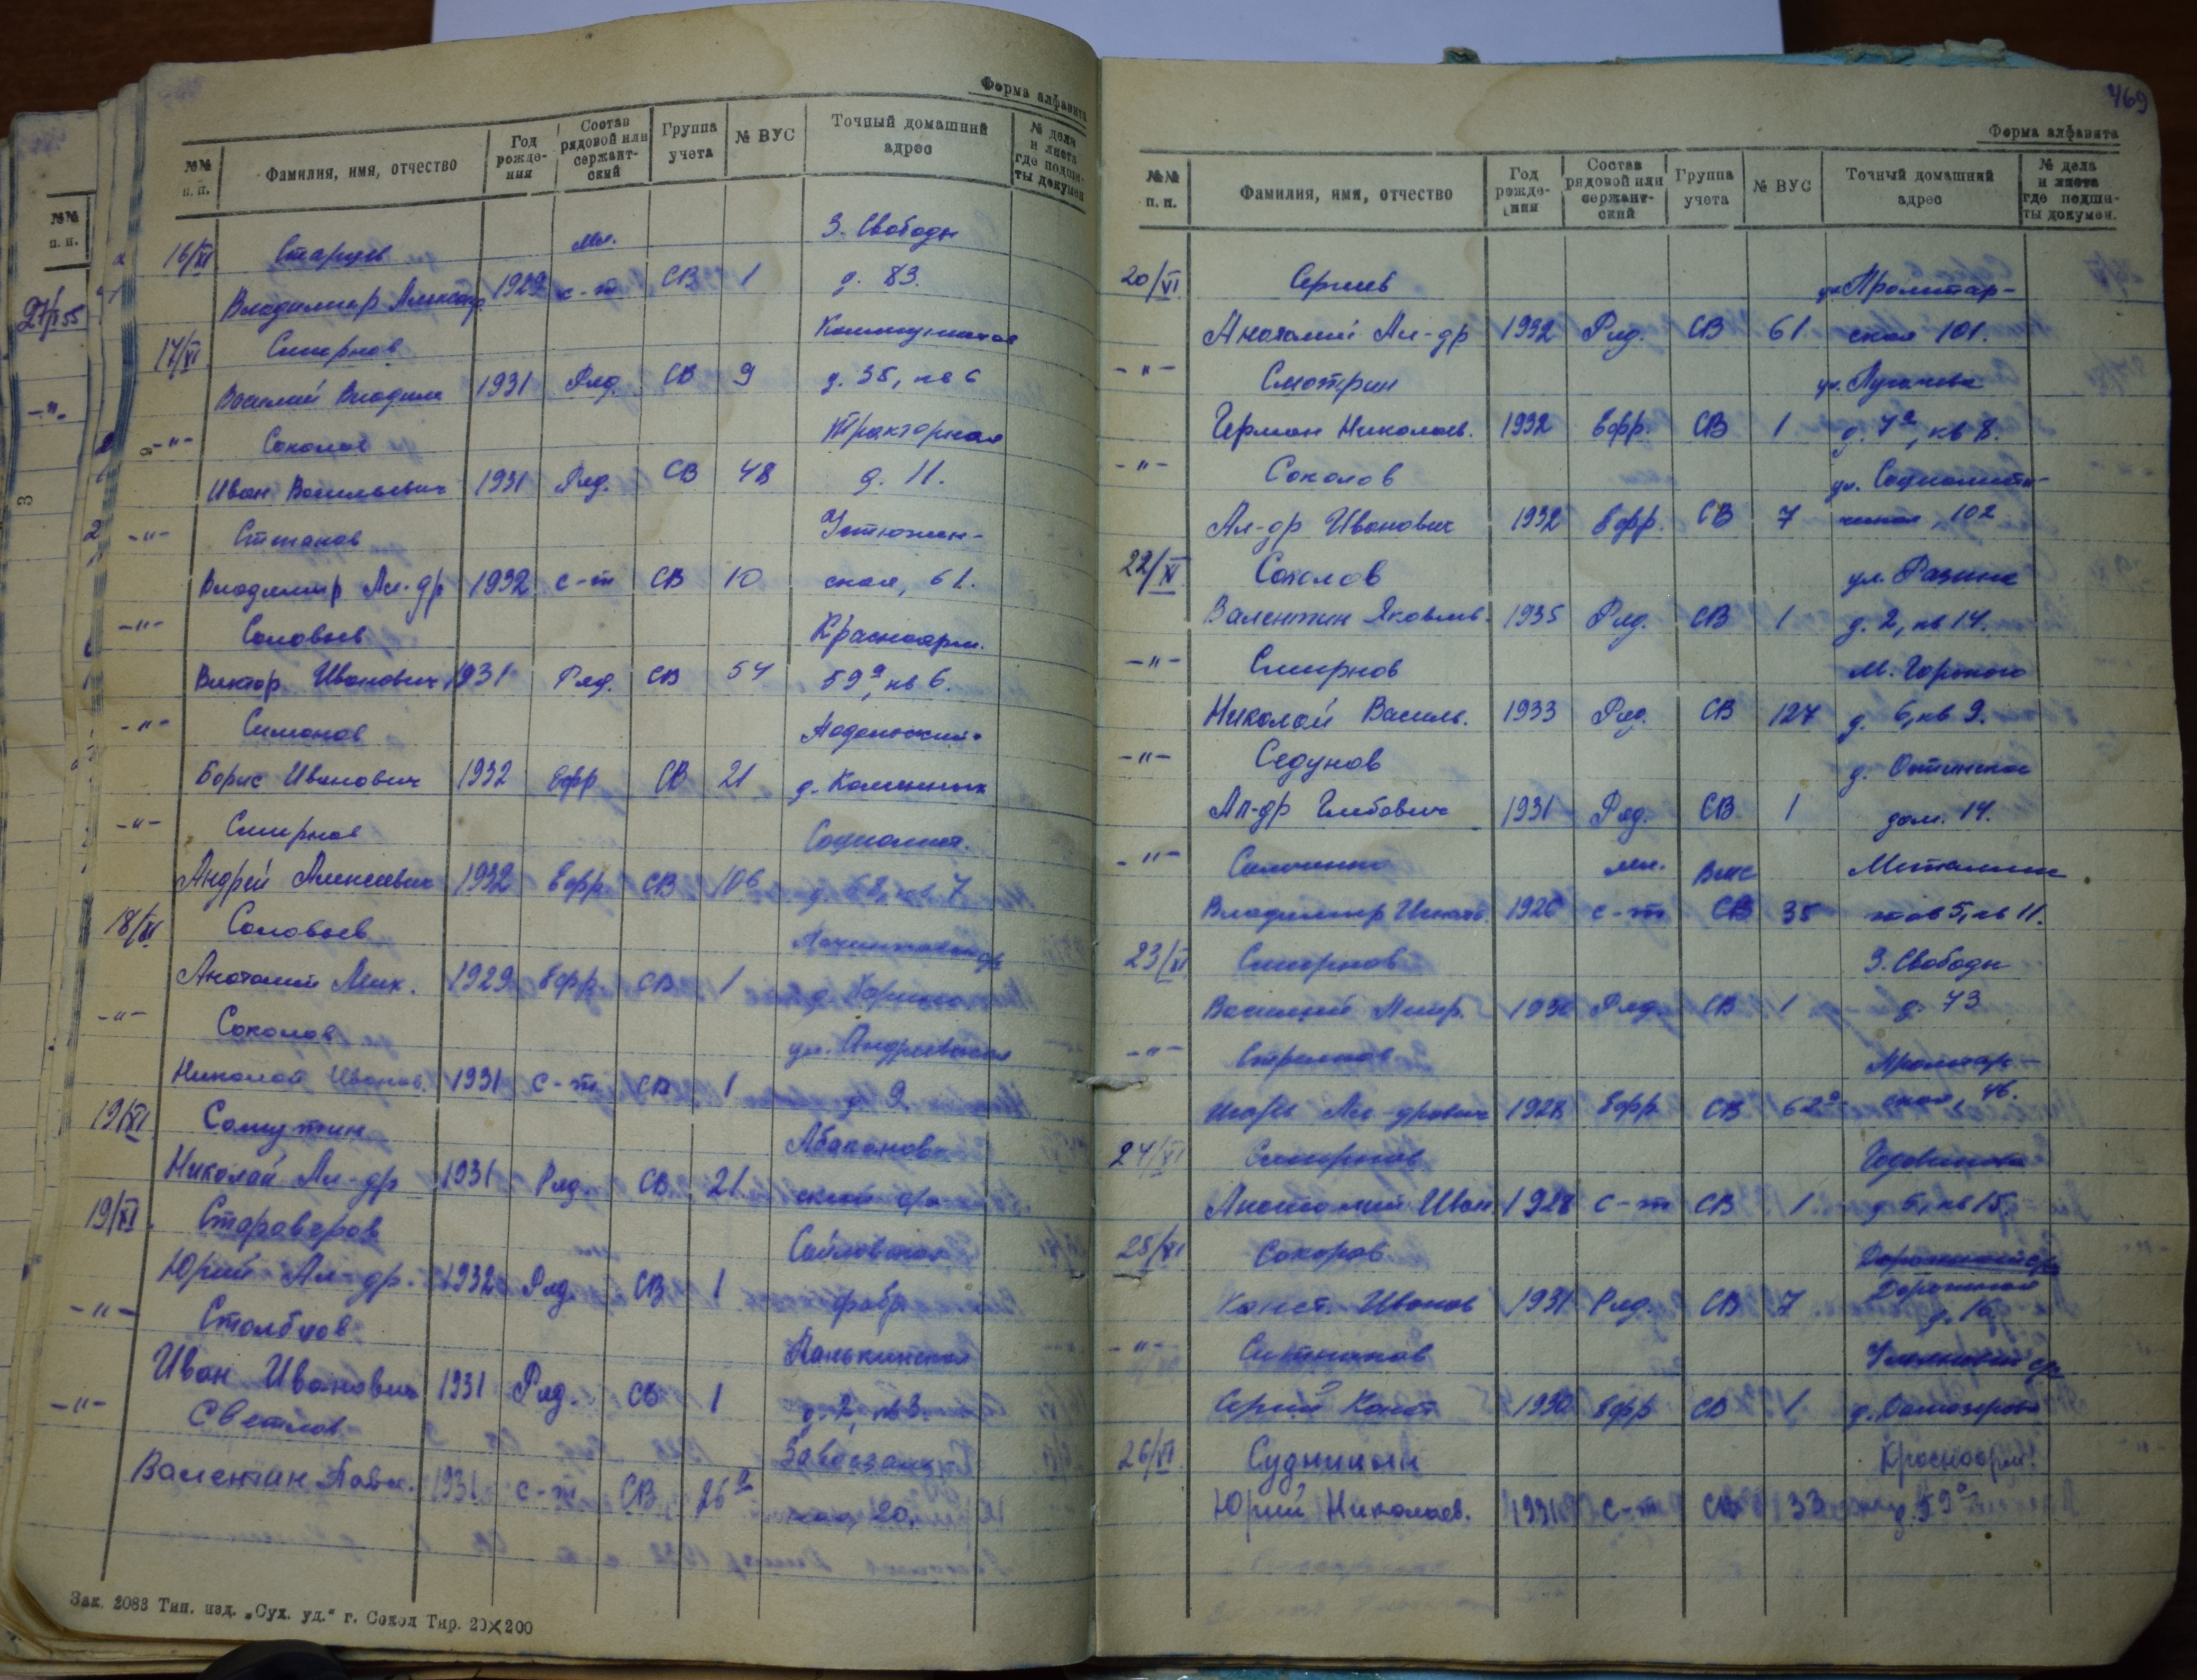 №№ п. п.
27/XI 55
-"-
3
Форма алфавита
№№ п. п. Фамилия, имя, отчество Год рождения Состав рядовой или сержантский Группа учета № ВУС Точный домашний адрес № дела и листа где подшиты докумен.
16/XI Старцев мл. З. Свободы
Владимир Александ 1929 с-т СВ 1 д. 83.
17/XI Смирнов Коммунистов
Василий Владим 1931 Ряд. СВ 9 д. 35, кв 6
-"- Соколов Тракторная
Иван Васильевич 1931 Ряд. СВ 48 д. 11.
-"- Степанов Устюжен-
Владимир Ал-др 1932 с-т СВ 10 ская, 61.
-"- Соловьев Красноарм.
Виктор Иванович 1931 Ряд. СВ 54 59а, кв 6.
-"- Симонов
Борис Иванович 1932 Ефр СВ 21 д.
-"- Смирнов Социалист.
Андрей Алексеевич 1932 Ефр СВ 106 д. 68, кв 7
18/XI Соловьев
Анатолий Мих. 1929 Ефр. СВ 1 д.
-"- Соколов ул. Андреевская
Николай Иванов. 1931 с-т СВ 1 д. 9
19/XI Самутин Абаканов-
Николай Ал-др 1931 Ряд. СВ 21
19/XI Староверов
Юрий Ал-др. 1932 Ряд. СВ 1 фабр.
-"- Столбков Панькинская
Иван Иванович 1931 Ряд. СВ 1 д. 2, кв 3.
-"- Светлов
Валентин Павл. 1931 с-т СВ 26а 20.
Зак. 2083 Тип. изд. „Сух. уд." г. Сокол Тир. 20×200
469
Форма алфавита
№№ п. п. Фамилия, имя, отчество Год рождения Состав рядовой или сержантский Группа учета № ВУС Точный домашний адрес № дела и листа где подшиты докумен.
20/XI Сергеев ул. Пролетар-
Анатолий Ал-др 1932 Ряд. СВ 61 ская 101.
-"- Смотрин ул. Пугачева
Герман Николаев. 1932 Ефр. СВ 1 д. 7а, кв 8.
-"- Соколов ул. Социалисти-
Ал-др Иванович 1932 Ефр. СВ 7 ческая, 102
22/XI Соколов ул. Разина
Валентин Яковлев. 1935 Ряд. СВ 1 д. 2, кв 14.
-"- Смирнов М. Горького
Николай Василь. 1933 Ряд. СВ 127 д. 6, кв 9.
-"- Седунов д.
Ал-др Глебович 1931 Ряд. СВ 1 дом. 14.
-"- мл. Металлис
Владимир 1926 с-т СВ 35 тов 5, кв 11.
23/XI Смирнов З. Свободы
Василий 1930 Ряд. СВ 1 д. 73
-"- Стрелков Пролетар-
Игорь Ал-дрович 1928 Ефр СВ 62а ская, 46.
24/XI Смирнов
Анатолий Иван 1928 с-т СВ 1 д. 5, кв 15
25/XI Сокоров
Конст. Иванов 1931 Ряд. СВ 7 Дорожная д. 16
-"- Ситников
Сергей Конст 1930 Ефр СВ 1 д.
26/XI Судницын Красноарм.
Юрий Николаев. 1931 с-т СВ 33 д. 59а